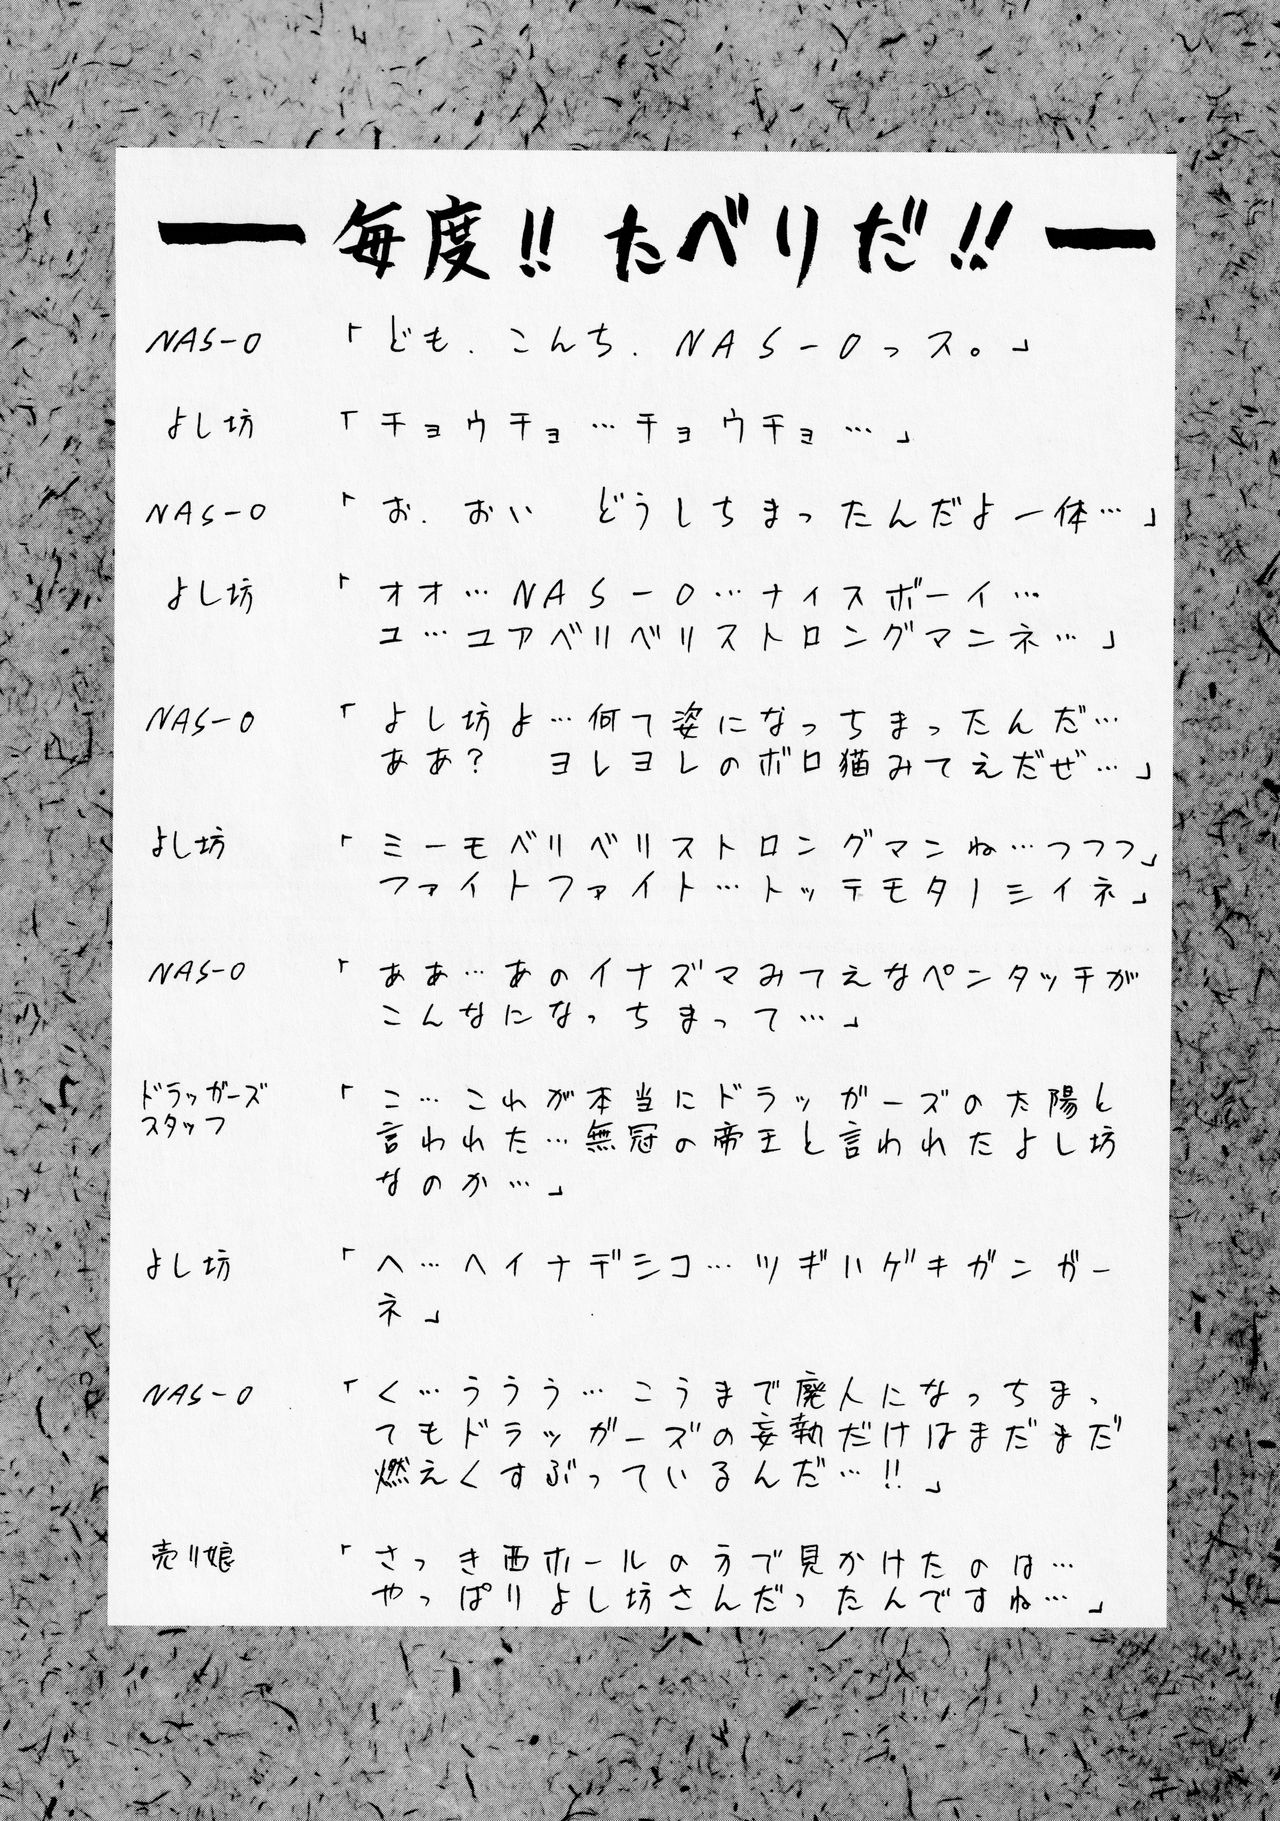 毎度!!たべりだ!!
NAS-O 「ども、こんち、NAS-Oっス。」
よし坊 「チョウチョ…チョウチョ…」
NAS-O 「お、おい どうしちまったんだよ一体…」
よし坊 「オオ…NAS-O…ナイスボーイ…
ユ…ユアベリベリストロングマンネ…」
NAS-O 「よし坊よ…何て姿になっちまったんだ…
ああ? ヨレヨレのボロ猫みてえだぜ…」
よし坊 「ミーモベリベリストロングマンね…フフフ」
ファイトファイト…トッテモタノシイネ」
NAS-O 「ああ…あのイナズマみてえなペンタッチが
こんなになっちまって…」
ドラッガーズ 「こ…これが本当にドラッガーズの太陽と
スタッフ 言われた…無冠の帝王と言われたよし坊
なのか…」
よし坊 「ヘ…ヘイナデシコ…ツギハゲキガンガー
ネ」
NAS-O 「く…ううう…こうまで廃人になっちまっ
てもドラッガーズの妄執だけはまだまだ
燃えくすぶっているんだ…!!」
売り娘 「さっき西ホールの方で見かけたのは…
やっぱりよし坊さんだったんですね…」